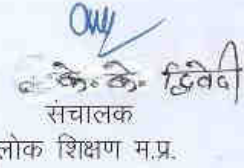 के. के. द्विवेदी
संचालक
लोक शिक्षण म.प्र.